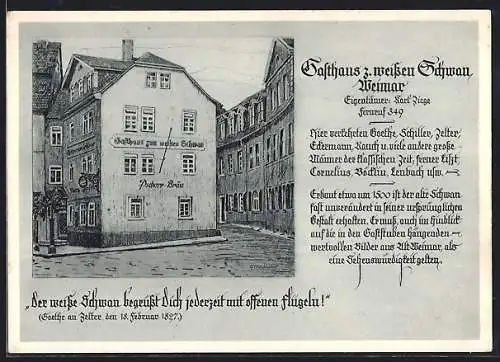 Gasthaus z. weißen Schwan
Weimar
Eigentümer: Karl Ziege
Fernruf 349
Hier verkehrten Goethe, Schiller, Zelter,
Eckermann, Rauch u. viele andere große
Männer der klassischen Zeit, ferner Liszt,
Cornelius, Böcklin, Lenbach usw. —
Erbaut etwa um 1500 ist der alte Schwan
fast unverändert in seiner ursprünglichen
Gestalt erhalten. Er muß, auch im Hinblick
auf die in den Gaststuben hängenden —
wertvollen Bilder aus Alt-Weimar, als
eine Sehenswürdigkeit gelten.
Gasthaus zum weißen Schwan
Bräu
„Der weiße Schwan begrüßt Dich jederzeit mit offenen Flügeln!"
(Goethe an Zelter den 18. Februar 1827.)